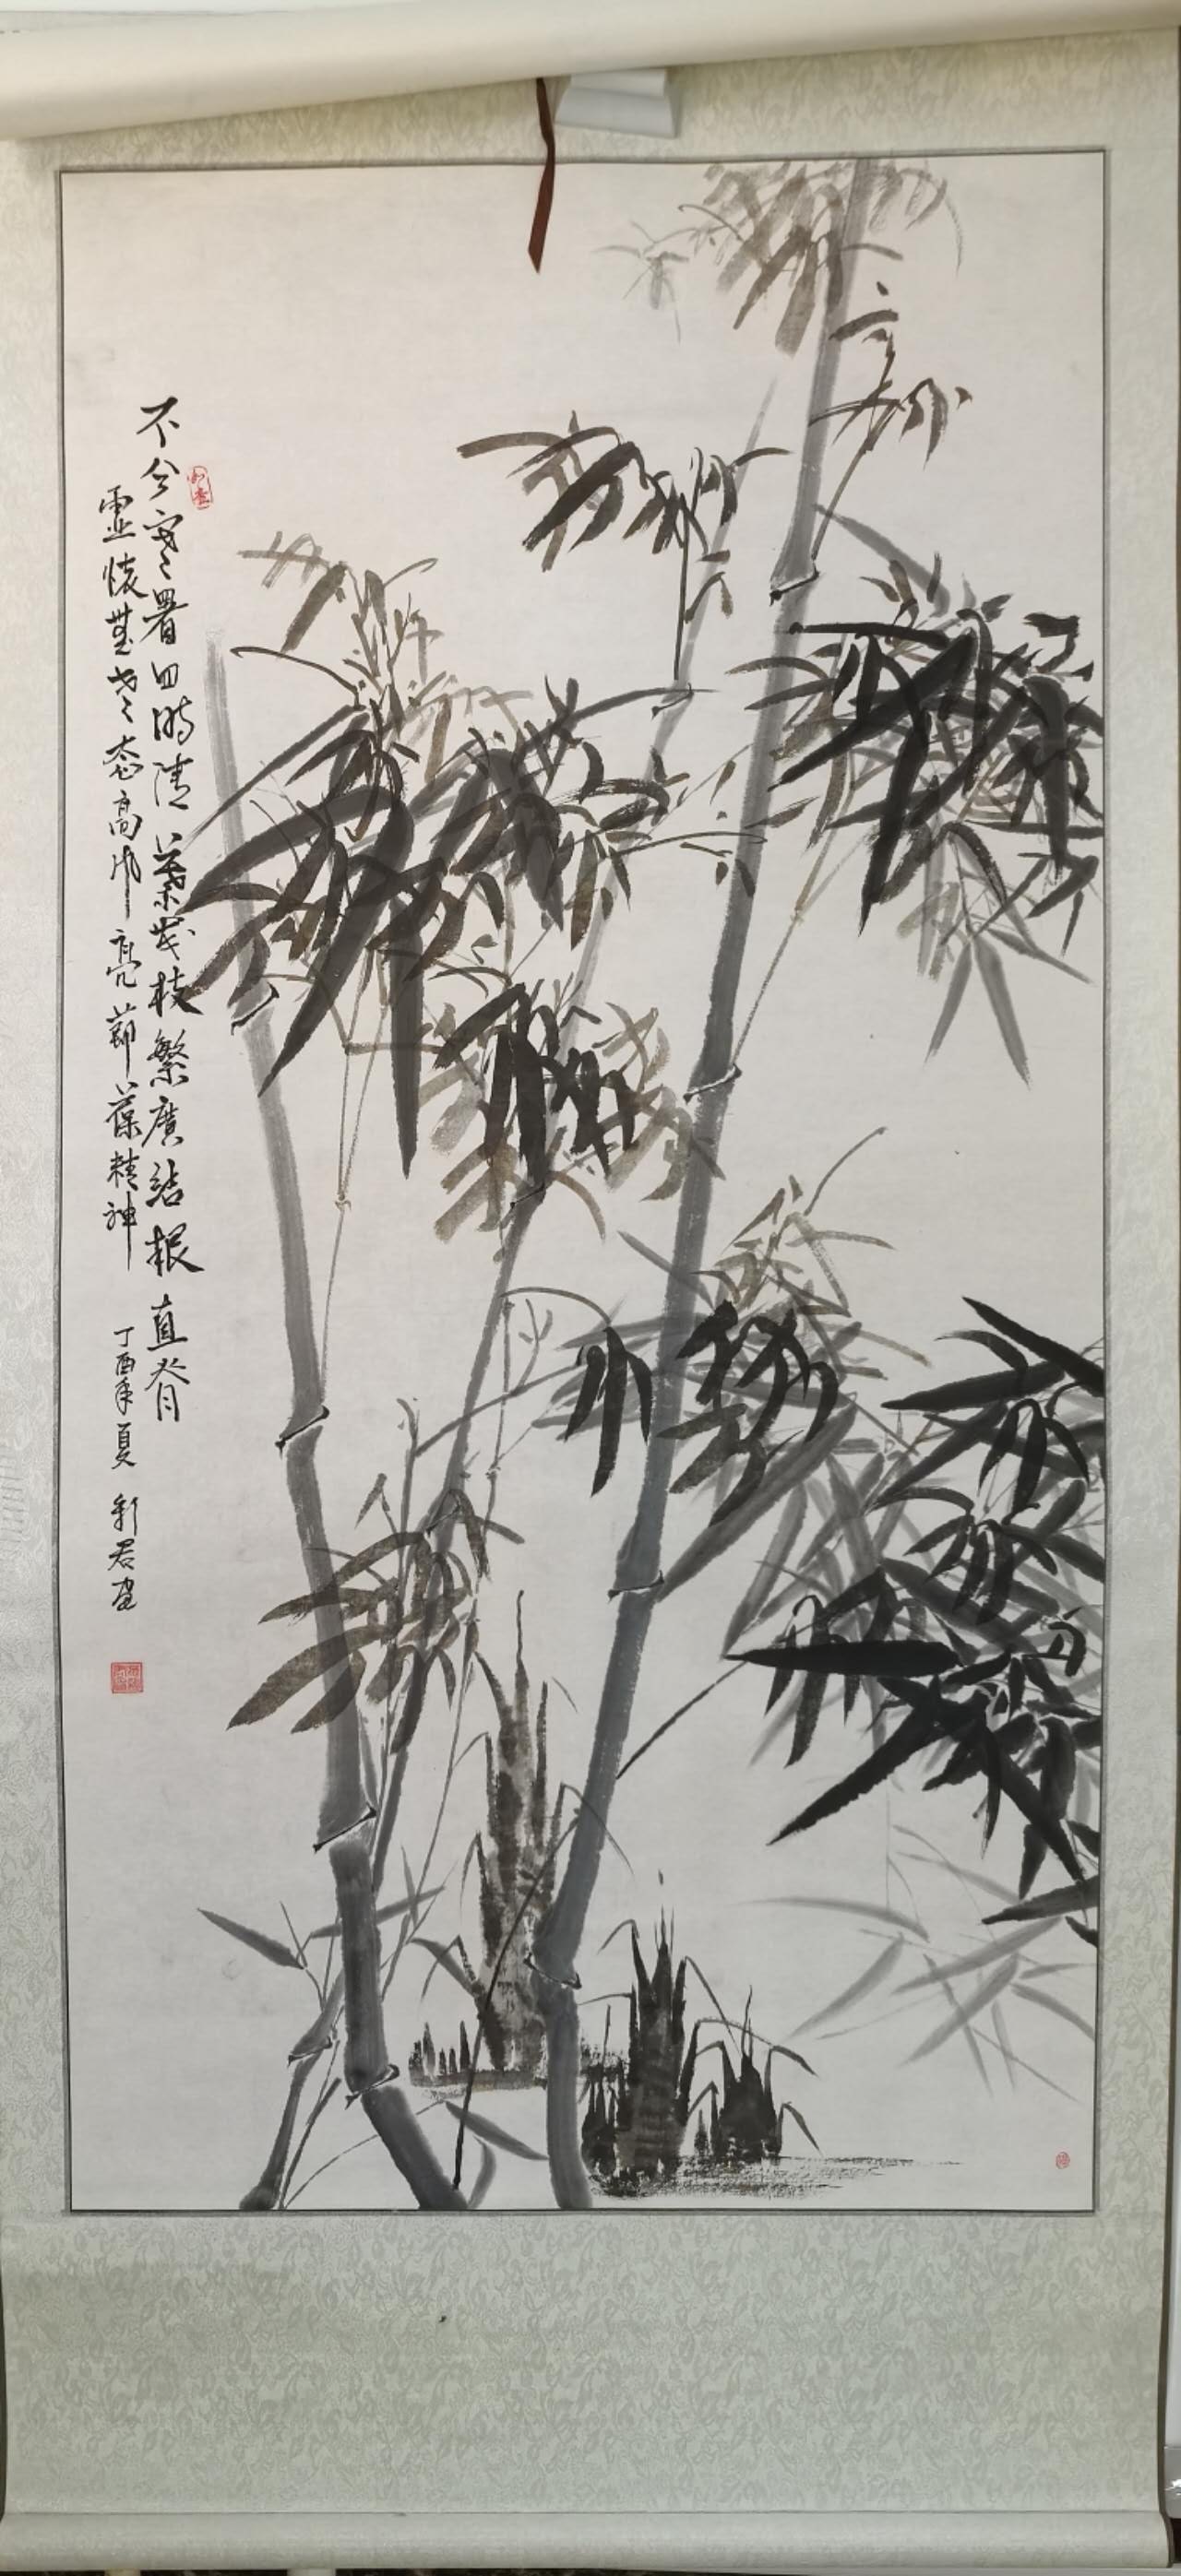 不分寒暑四時清葉茂枝繁廣結根直脊
虛懷無老态高風亮節葆精神
丁酉年夏 彩君画